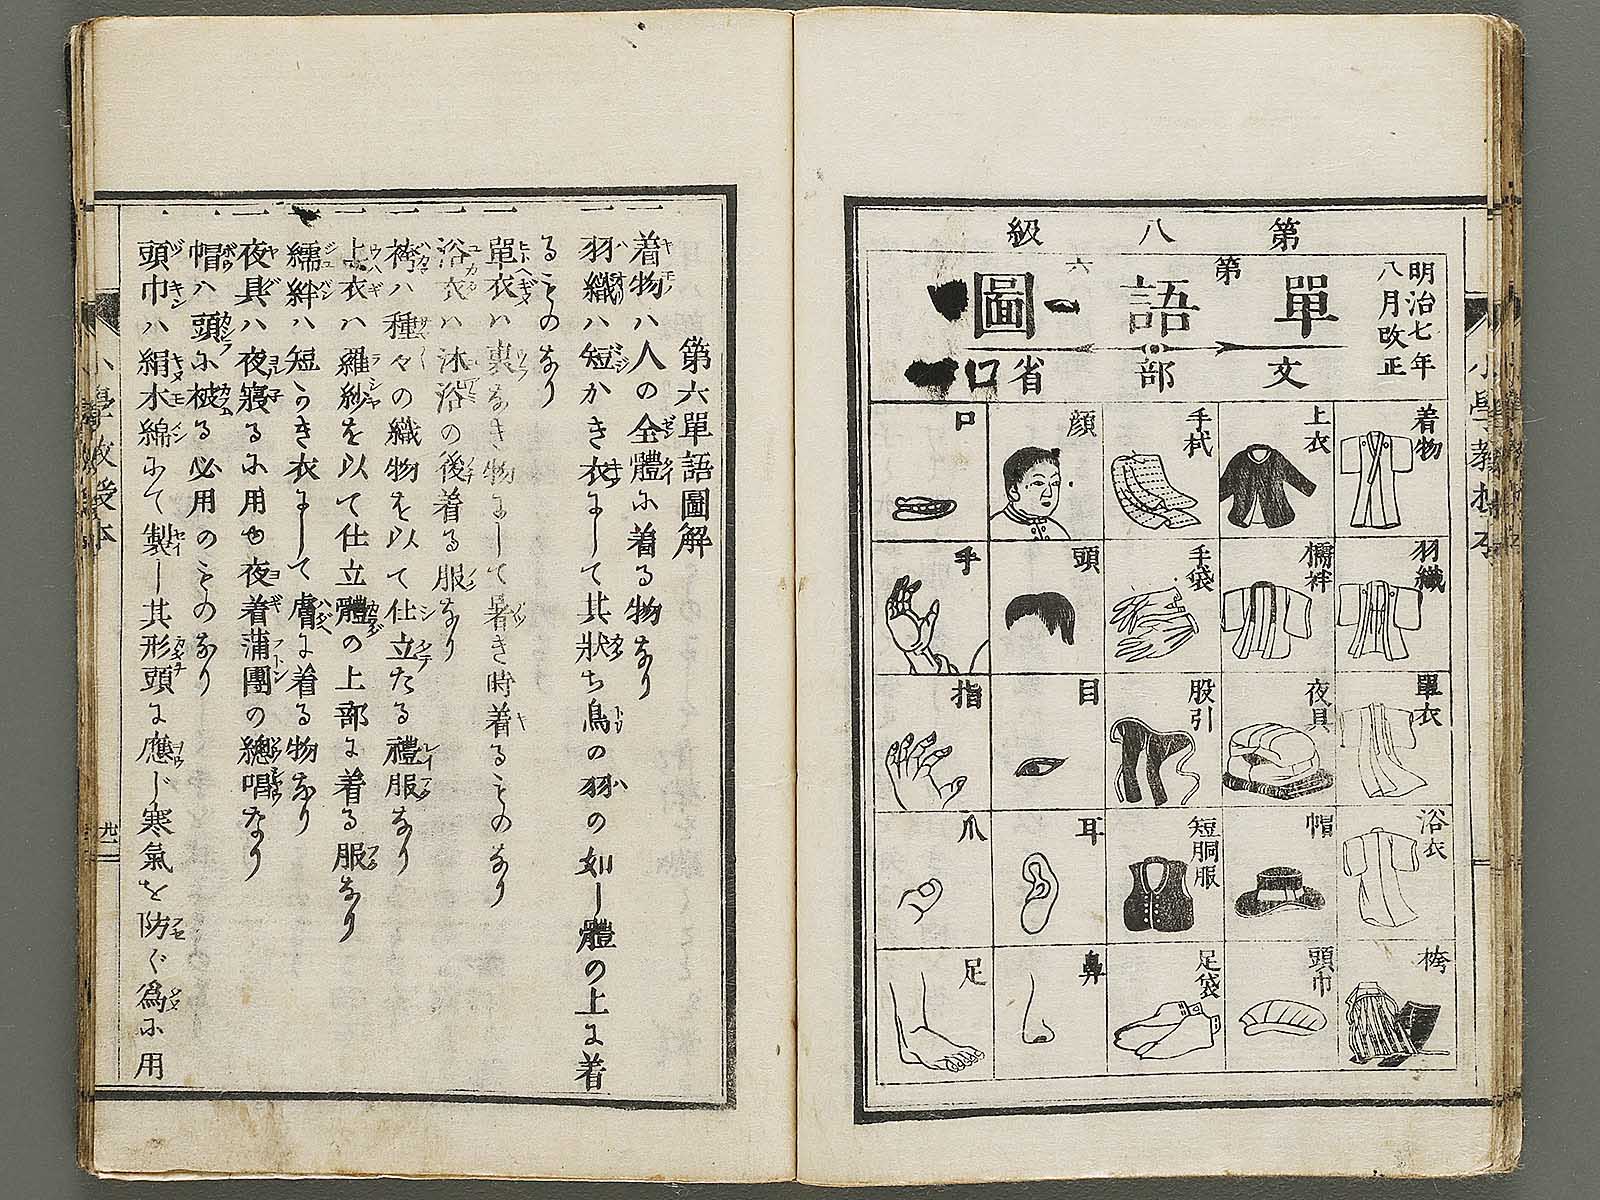 第八級
明治七年
八月改正
第六
單語圖
文部省
着物
羽織
單衣
浴衣
袴
上衣
襦袢
夜具
帽
頭巾
手拭
手袋
股引
短胴服
足袋
顔
頭
目
耳
鼻
口
手
指
爪
足
第六單語圖解
一着物ハ人の全體に着る物なり
一羽織ハ短かき衣にして其狀ち鳥の羽の如し體の上に着
るものなり
一單衣ハ裏なき物にして暑き時着るものなり
一浴衣ハ沐浴の後着る服なり
一袴ハ種々の織物を以て仕立たる禮服なり
一上衣ハ羅紗を以て仕立體の上部に着る服なり
一襦袢ハ短かき衣にして膚に着る物なり
一夜具ハ夜寢るに用ゆ夜着蒲團の總唱なり
一帽ハ頭に被る必用のものなり
一頭巾ハ絹木綿にて製し其形頭に應じ寒氣を防ぐ爲に用
小學教授本
廿一